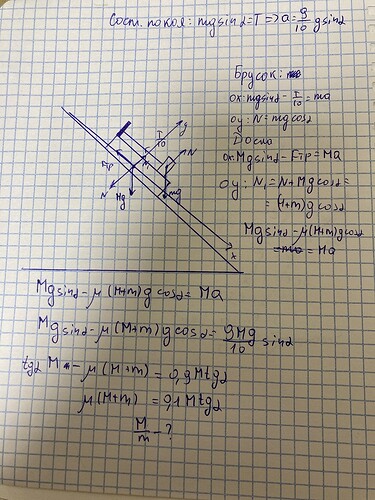 Сост. покоя: mgsinα=T => a=9/10 gsinα
Брусок:
ox: mgsinα - T/10 = ma
oy: N = mgcosα
Доска
ox: Mgsinα - Fтр = Ma
oy: N₁ = N + Mgcosα =
= (M+m)gcosα
Mgsinα - μ(M+m)gcosα
= Ma
T/10
y
N
N₁
Fтр
N
Mg
mg
x
Mgsinα - μ(M+m)g cosα = Ma
Mgsinα - μ(M+m)g cosα = 9Mg/10 sinα
tgα M - μ(M+m) = 0,9Mtgα
μ(M+m) = 0,1Mtgα
M/m - ?